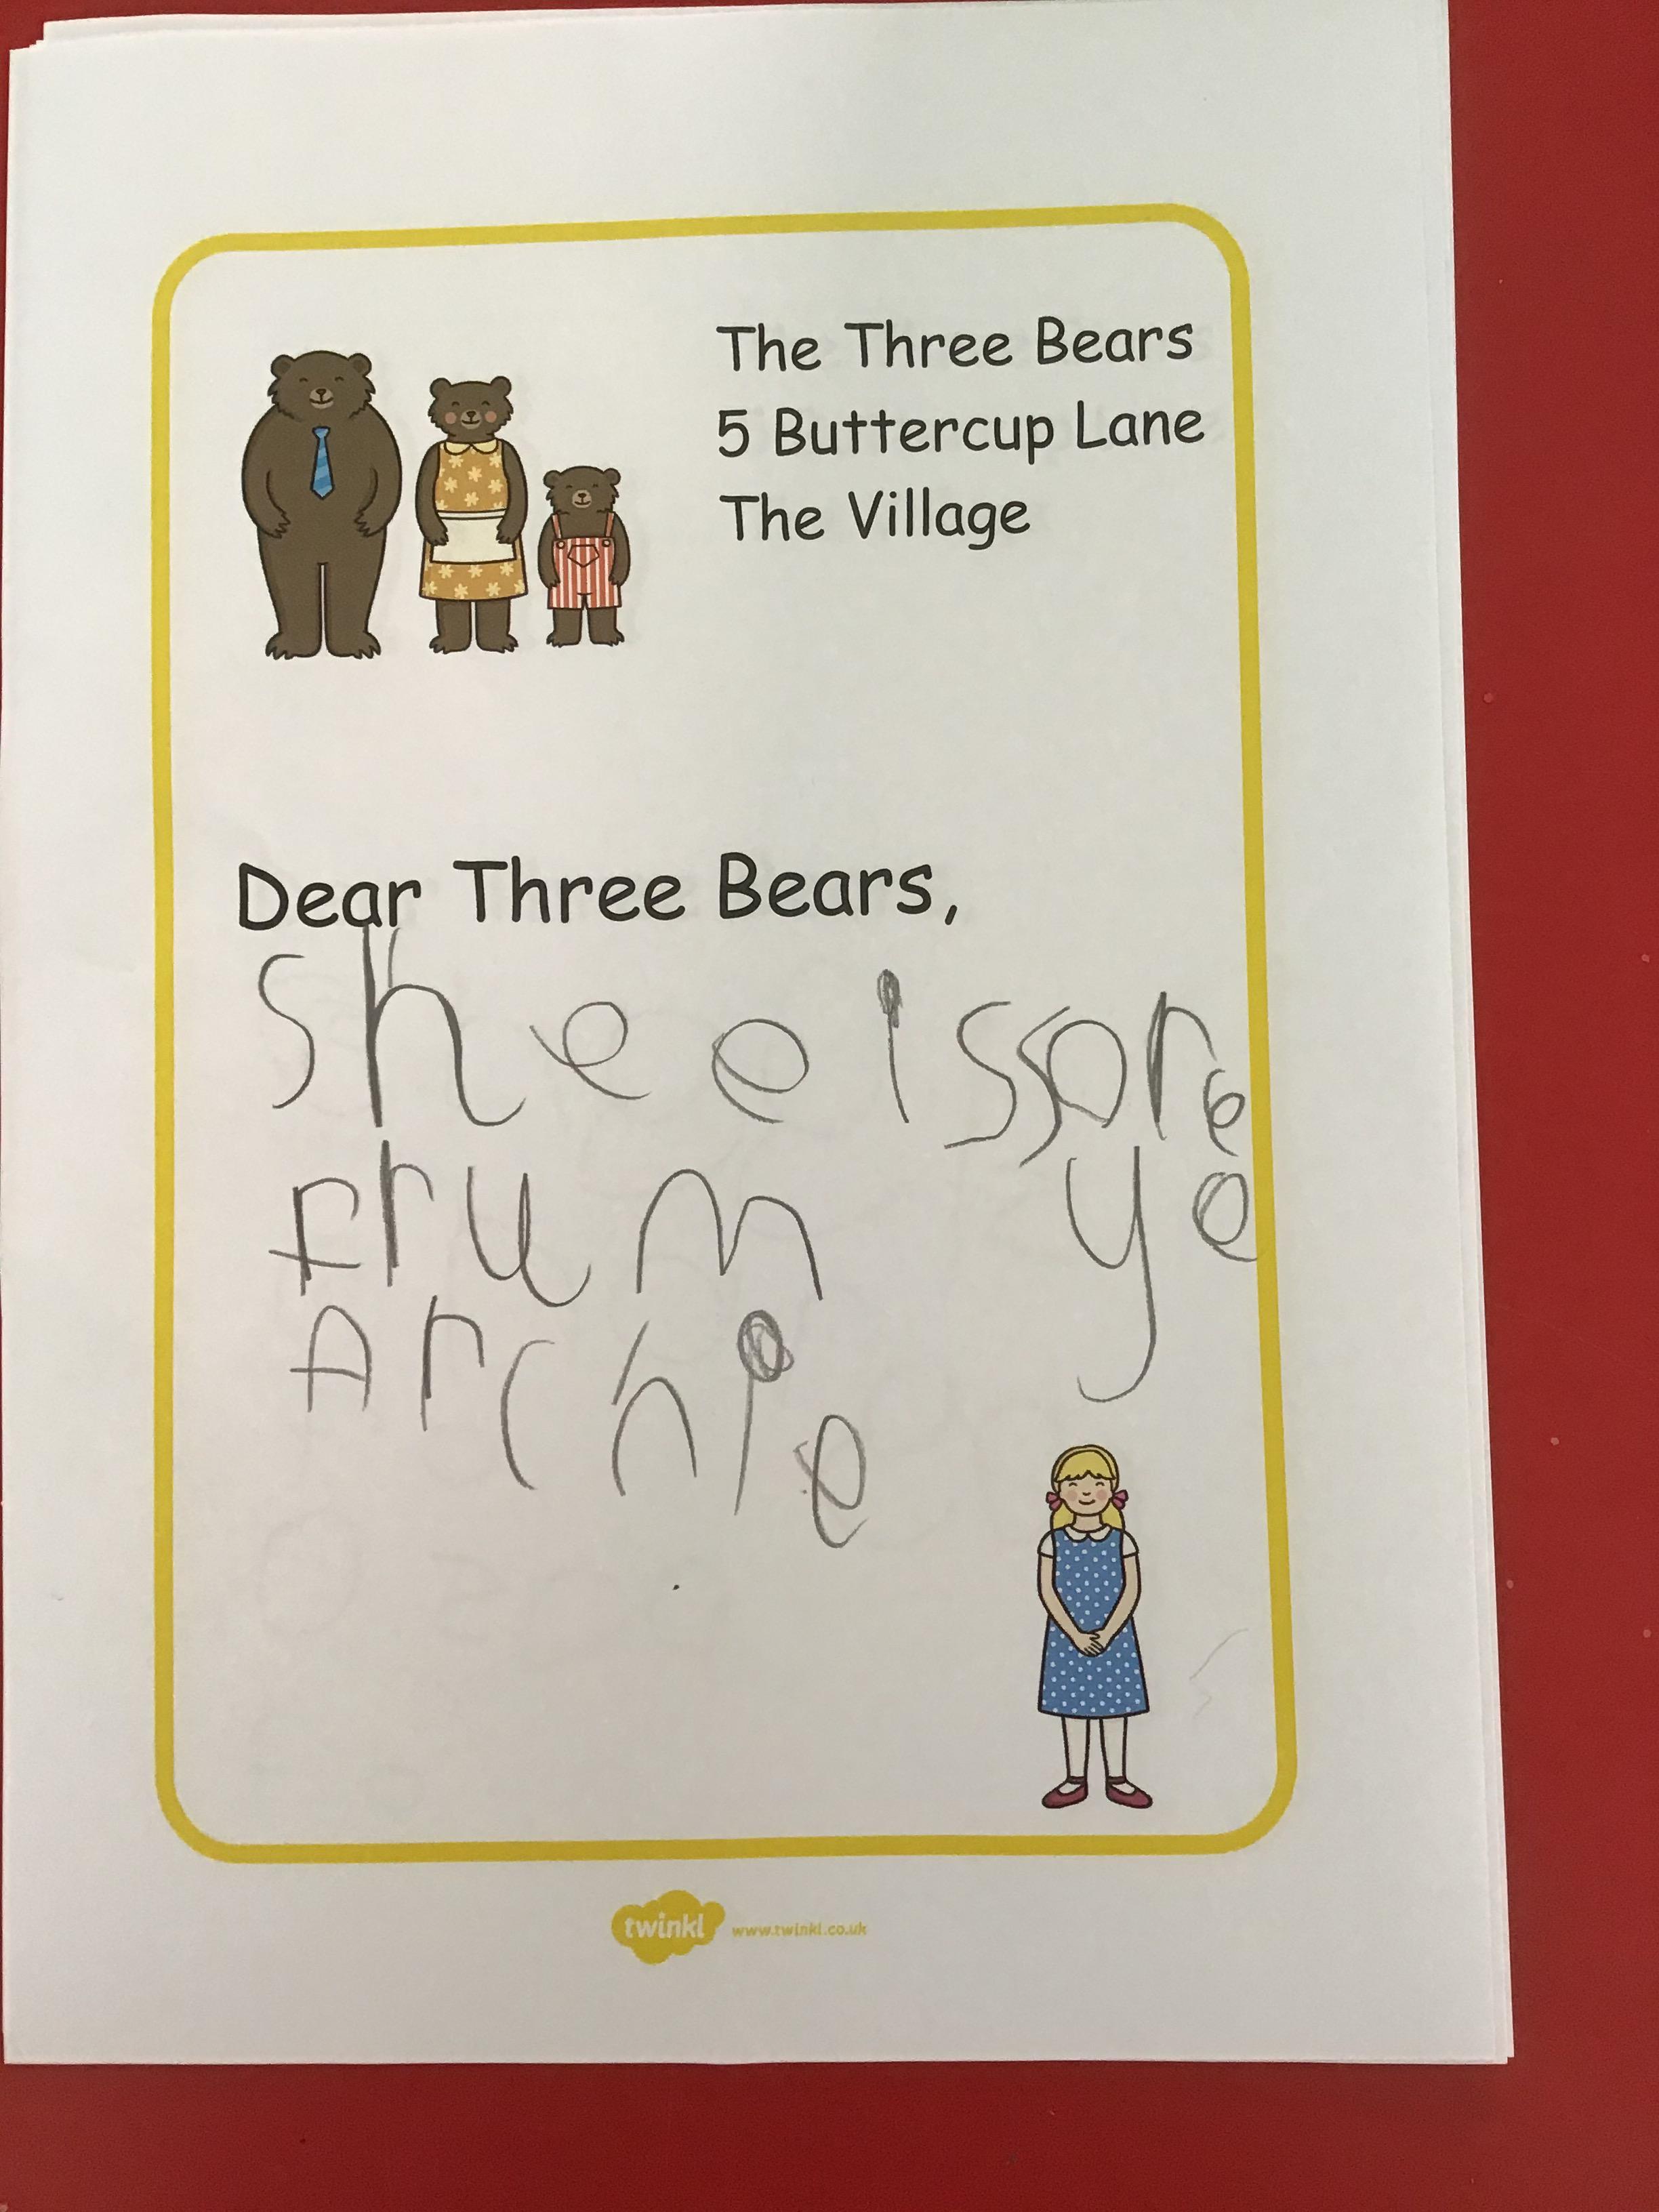 The Three Bears
5 Buttercup Lane
The Village
Dear Three Bears,
shee is sore
frum ye
Archie
twinkl www.twinkl.co.uk